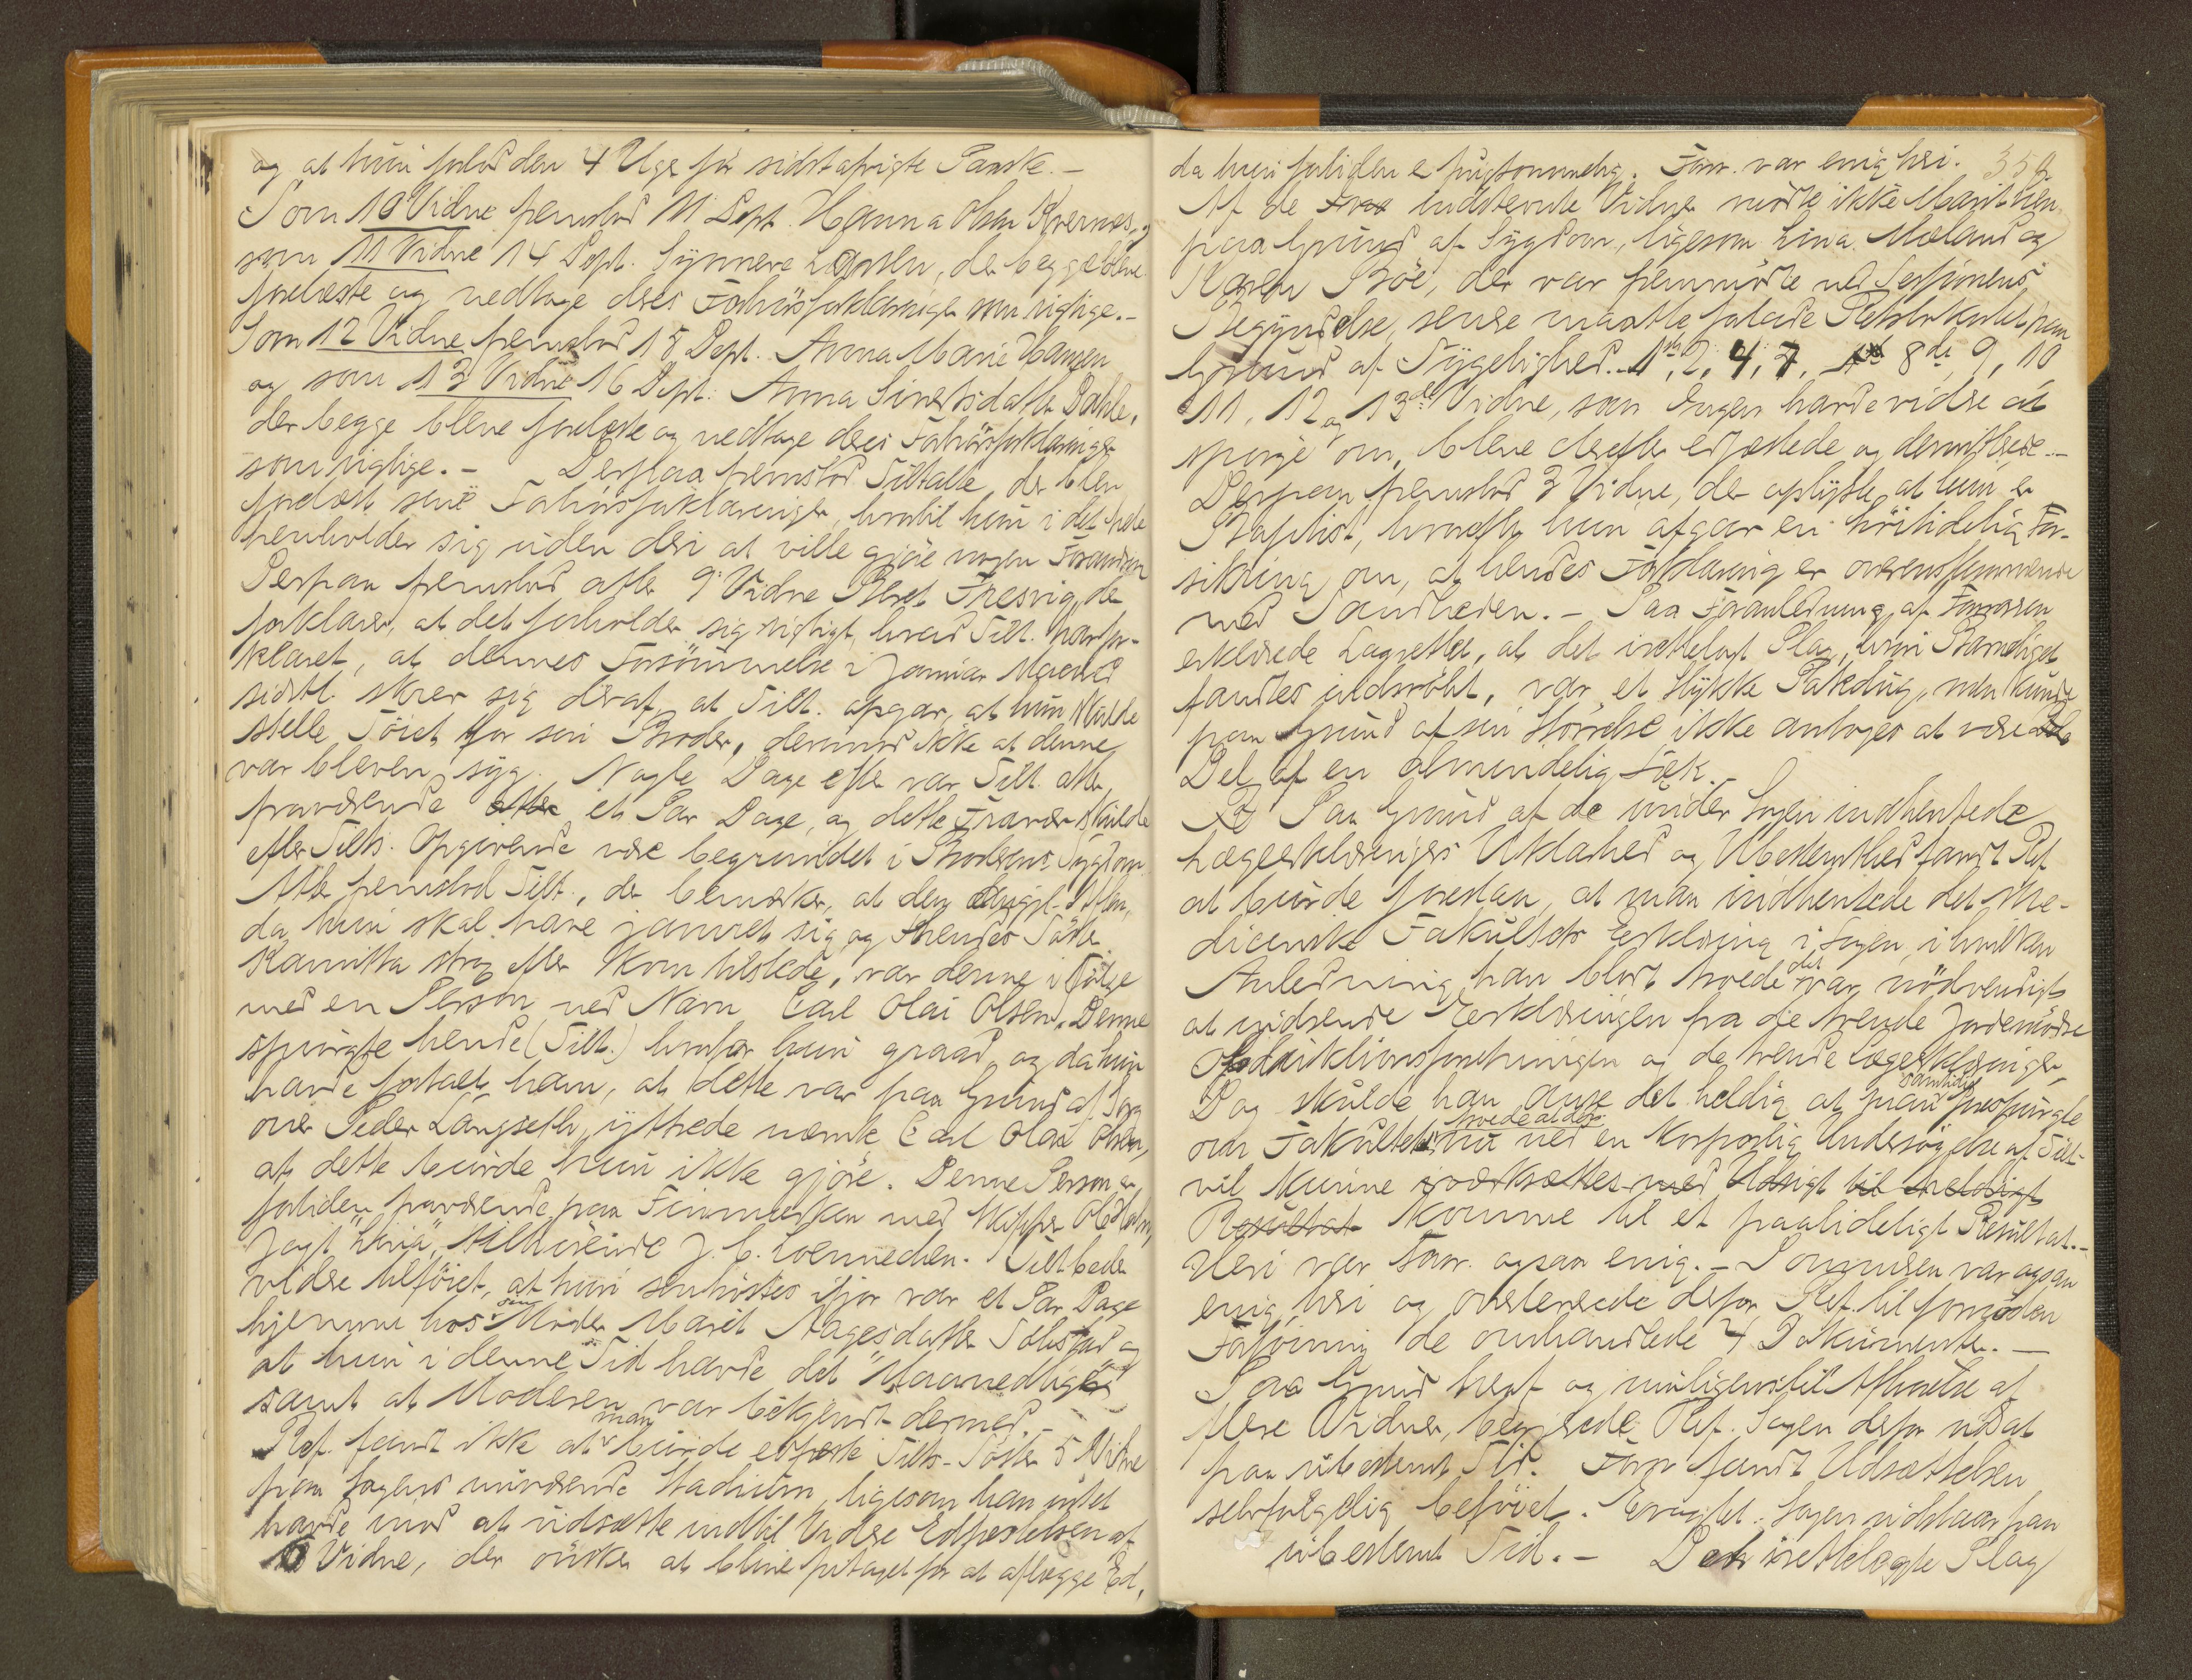 og at hun forlod den 4 Uge før sidstafvigte Paaske. –
Som 10 Vidne fremstod 11 Dept. Hanna Olsen Kvernes, og
som 11 Vidne 14 Dept. Synnøve Larsen, der begge bleve
foreleste og vedtoge deres Forhørsforklaringer som rigtige. –
Som 12 Vidne fremstod 15 Dept. Anna Marie Hansen
og som 13 Vidne 16 Dept. Anna Sivertsdatter Dahle,
der begge bleve foreleste og vedtoge deres Forhørsforklaringer
som rigtige. – Derpaa fremstod Tiltalte, der blev
forelæst sine Forhørsforklaringer, hvortil hun i det hele
henholder sig uden deri at ville gjøre nogen Forandring
Derpaa fremstod atter 9 Vidne Beret Fresvig, der
forklarer, at det forholder sig rigtigt, hvad Tilt. har for-
klaret, at dennes Forsømmelse i Januar Maaned
sidstl. skrev sig deraf, at Tilt. opgav, at hun skulde
stelle Tøiet for sin Broder, derimod ikke at denne
var bleven syg. Nogle Dage efter var Tilt. atter
fraværende et Par Dage, og dette Fravær skulde
efter Tilts. Opgivende være begrundet i Broderens Sygdom
Atter fremstod Tilt., der bemærker, at den Aften,
da hun skal have jamret sig og hendes Søster
Kamitta strax efter kom tilstede, var denne i Følge
med en Person ved Navn Carl Olai Olsen. Denne
spurgte hende (Tilt.) hvorfor hun græd, og da hun
havde fortalt ham, at dette var paa Grund af Sorg
over Peder Langseth, yttrede nævnte Carl Olai Olsen,
at dette burde hun ikke gjøre. Denne Person er
fortiden fraværende paa Finmarken med Skipper Ole Holm,
Jagt "Livia", tilhørende J. C. Loennechen. Tilt. beder
videre tilføiet, at hun senhøstes ifjor var et Par Dage
hjemme hos sin Moder Marit Aagesdatter Tolustad og
at hun i denne Tid havde det "Maanedlige"
samt at Moderen var bekjendt dermed. –
Ref. fandt ikke at man burde edfæste Tilts. Søster 5 Vidne
paa Sagens nuværende Stadium, ligesom han intet
havde imod at udsætte indtil videre Edfæstelsen af
6 Vidne, der ønsker at blive fritaget for at aflægge Ed,
359
da hun fortiden er frugtsommelig. Forsv. var enig heri.
Af de indstevnte Vidner mødte ikke Marit
paa Grund af Sygdom, ligesom Lina Mæland og
Karen Bøe, der var fremmødte ved Sessionens
Begyndelse, senere maatte forlade Retslokalet paa
Grund af Sygelighed. 1ste, 2, 4, 7, 8de, 9, 10
11, 12 og 13de Vidne, som Ingen havde videre at
spørge om, bleve derefter edfæstede og dimitterede. –
Derpaa fremstod 3 Vidne, der oplyste, at hun er
Baptist, hvorefter hun afgav en høitidelig For-
sikring om, at hendes Forklaring er overensstemmende
med Sandheden. – Paa Foranledning af Forsvareren
erklærede Lagrettet, at det irettelagt Plag, hvori Barneliget
fandtes indsvøbt, var et Stykke Pakdug, men kunde
paa Grund af sin Størrelse ikke antages at være
Del af en almindelig Sæk. –
Paa Grund af de under Sagen indhentede
Lægeerklæringers Uklarhed og Ubestemthed fandt Ref.
at burde foreslaa, at man indhentede det me-
dicinske Fakultets Erklæring i Sagen, i hvilken
Anledning han blot troede det var nødvendigt
at indsende Erklæringen fra de tvende Jordemødre
Obduktionsforretningen og de tvende Lægeerklæringer,
Dog skulde han anse det heldig at man samtidig forespurgte
om Fakultetet troede at der nu ved en korporlig Undersøgelse af Tilt.
vil kunne iværksættes med Udsigt til heldigt
Resultat komme til et paalideligt Resultat. –
Heri var Forsv. ogsaa enig. – Dommeren var ogsaa
enig heri og overleverede derfor Ref. til fornøden
Føining de omhandlede 4 Dokumenter. –
Paa Grund heraf og muligens til Afhørelse af
flere Vidner, begjærede Ref. Sagen derfor udsat
paa ubestemt Tid. Forsv. fandt Udsættelsen
selvfølgelig beføiet. Eragtet: Sagen udstaar paa
ubestemt Tid. – Det irettelagte Plag